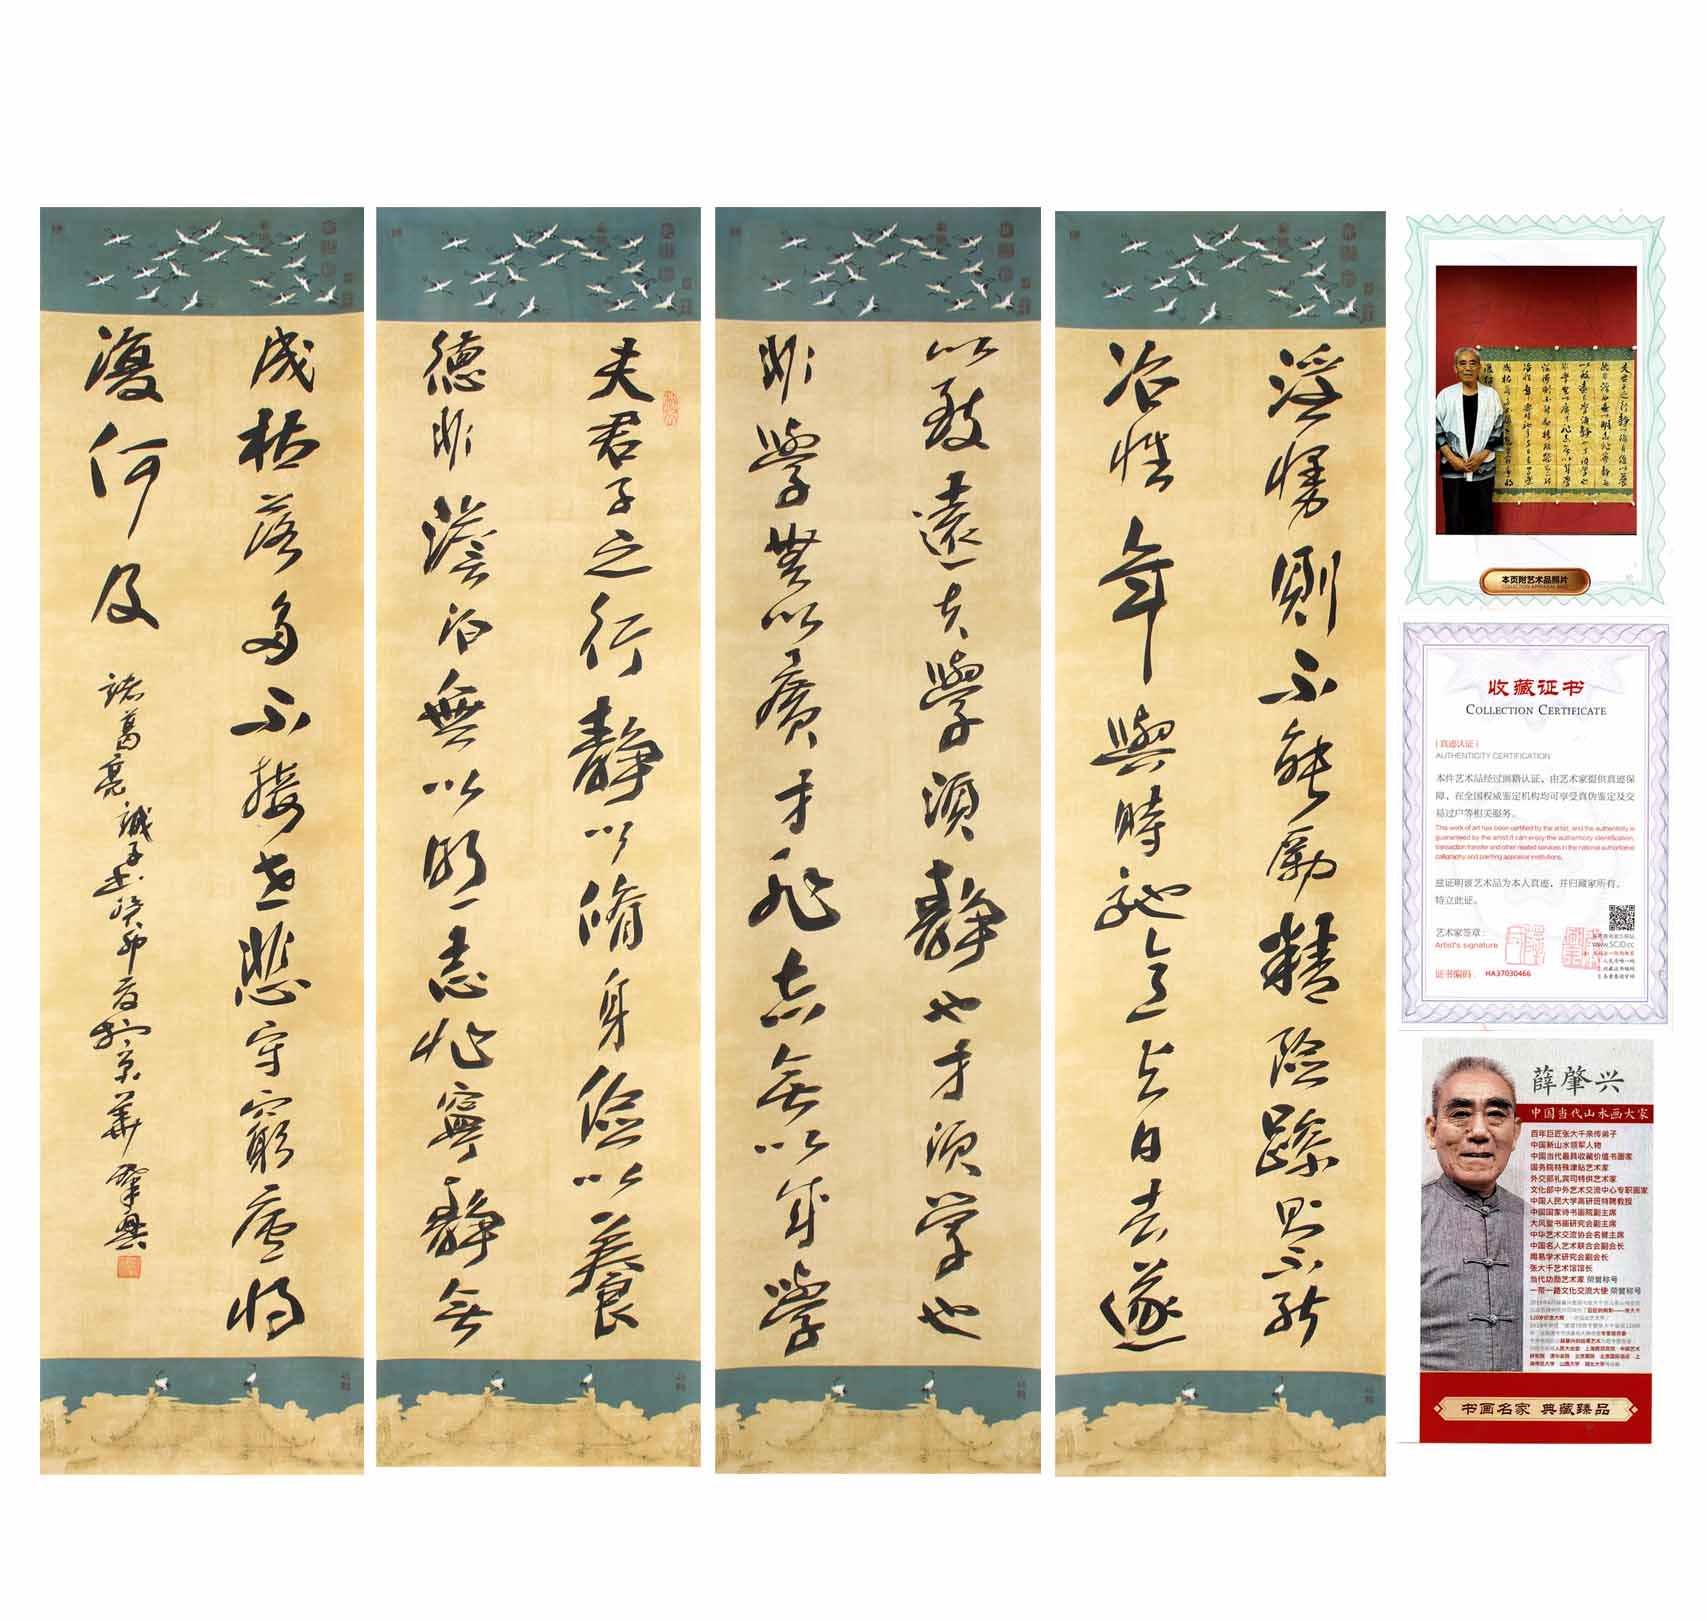 夫君子之行靜以脩身儉以養
德非澹泊無以明志非寧靜無
以致遠夫學須靜也才須學也
非學無以廣才非志無以成學
淫慢則不能勵精險躁則不能
冶性年與時馳意與日去遂
成枯落多不接世悲守窮廬將
復何及
諸葛亮誡子書癸卯夏於京華肇興
本页附艺术品照片
收藏证书
COLLECTION CERTIFICATE
(真迹认证)
AUTHENTICITY CERTIFICATION
本件艺术品经过画籍认证，由艺术家提供真迹保
障，在全国权威鉴定机构均可享受真伪鉴定及交
易过户等相关服务。
This work of art has been certified by the artist, and the authenticity is
guaranteed by the artist.It can enjoy the authenticity identification,
transaction transfer and other related services in the national authoritative
calligraphy and painting appraisal institutions.
兹证明该艺术品为本人真迹，并归藏家所有。
特立此证。
艺术家签章：
Artist's signature
www.SCJD.cc
证书编码： HA37030466
薛肇兴
中国当代山水画大家
百年巨匠张大千亲传弟子
中国新山水领军人物
中国当代最具收藏价值书画家
国务院特殊津贴艺术家
外交部礼宾司特供艺术家
文化部中外艺术交流中心专职画家
中国人民大学高研班特聘教授
中国国家诗书画院副主席
大风堂书画研究会副主席
中华艺术交流协会名誉主席
中国名人艺术联合会副会长
周易学术研究会副会长
张大千艺术馆馆长
当代功勋艺术家 荣誉称号
一带一路文化交流大使 荣誉称号
书画名家 典藏臻品